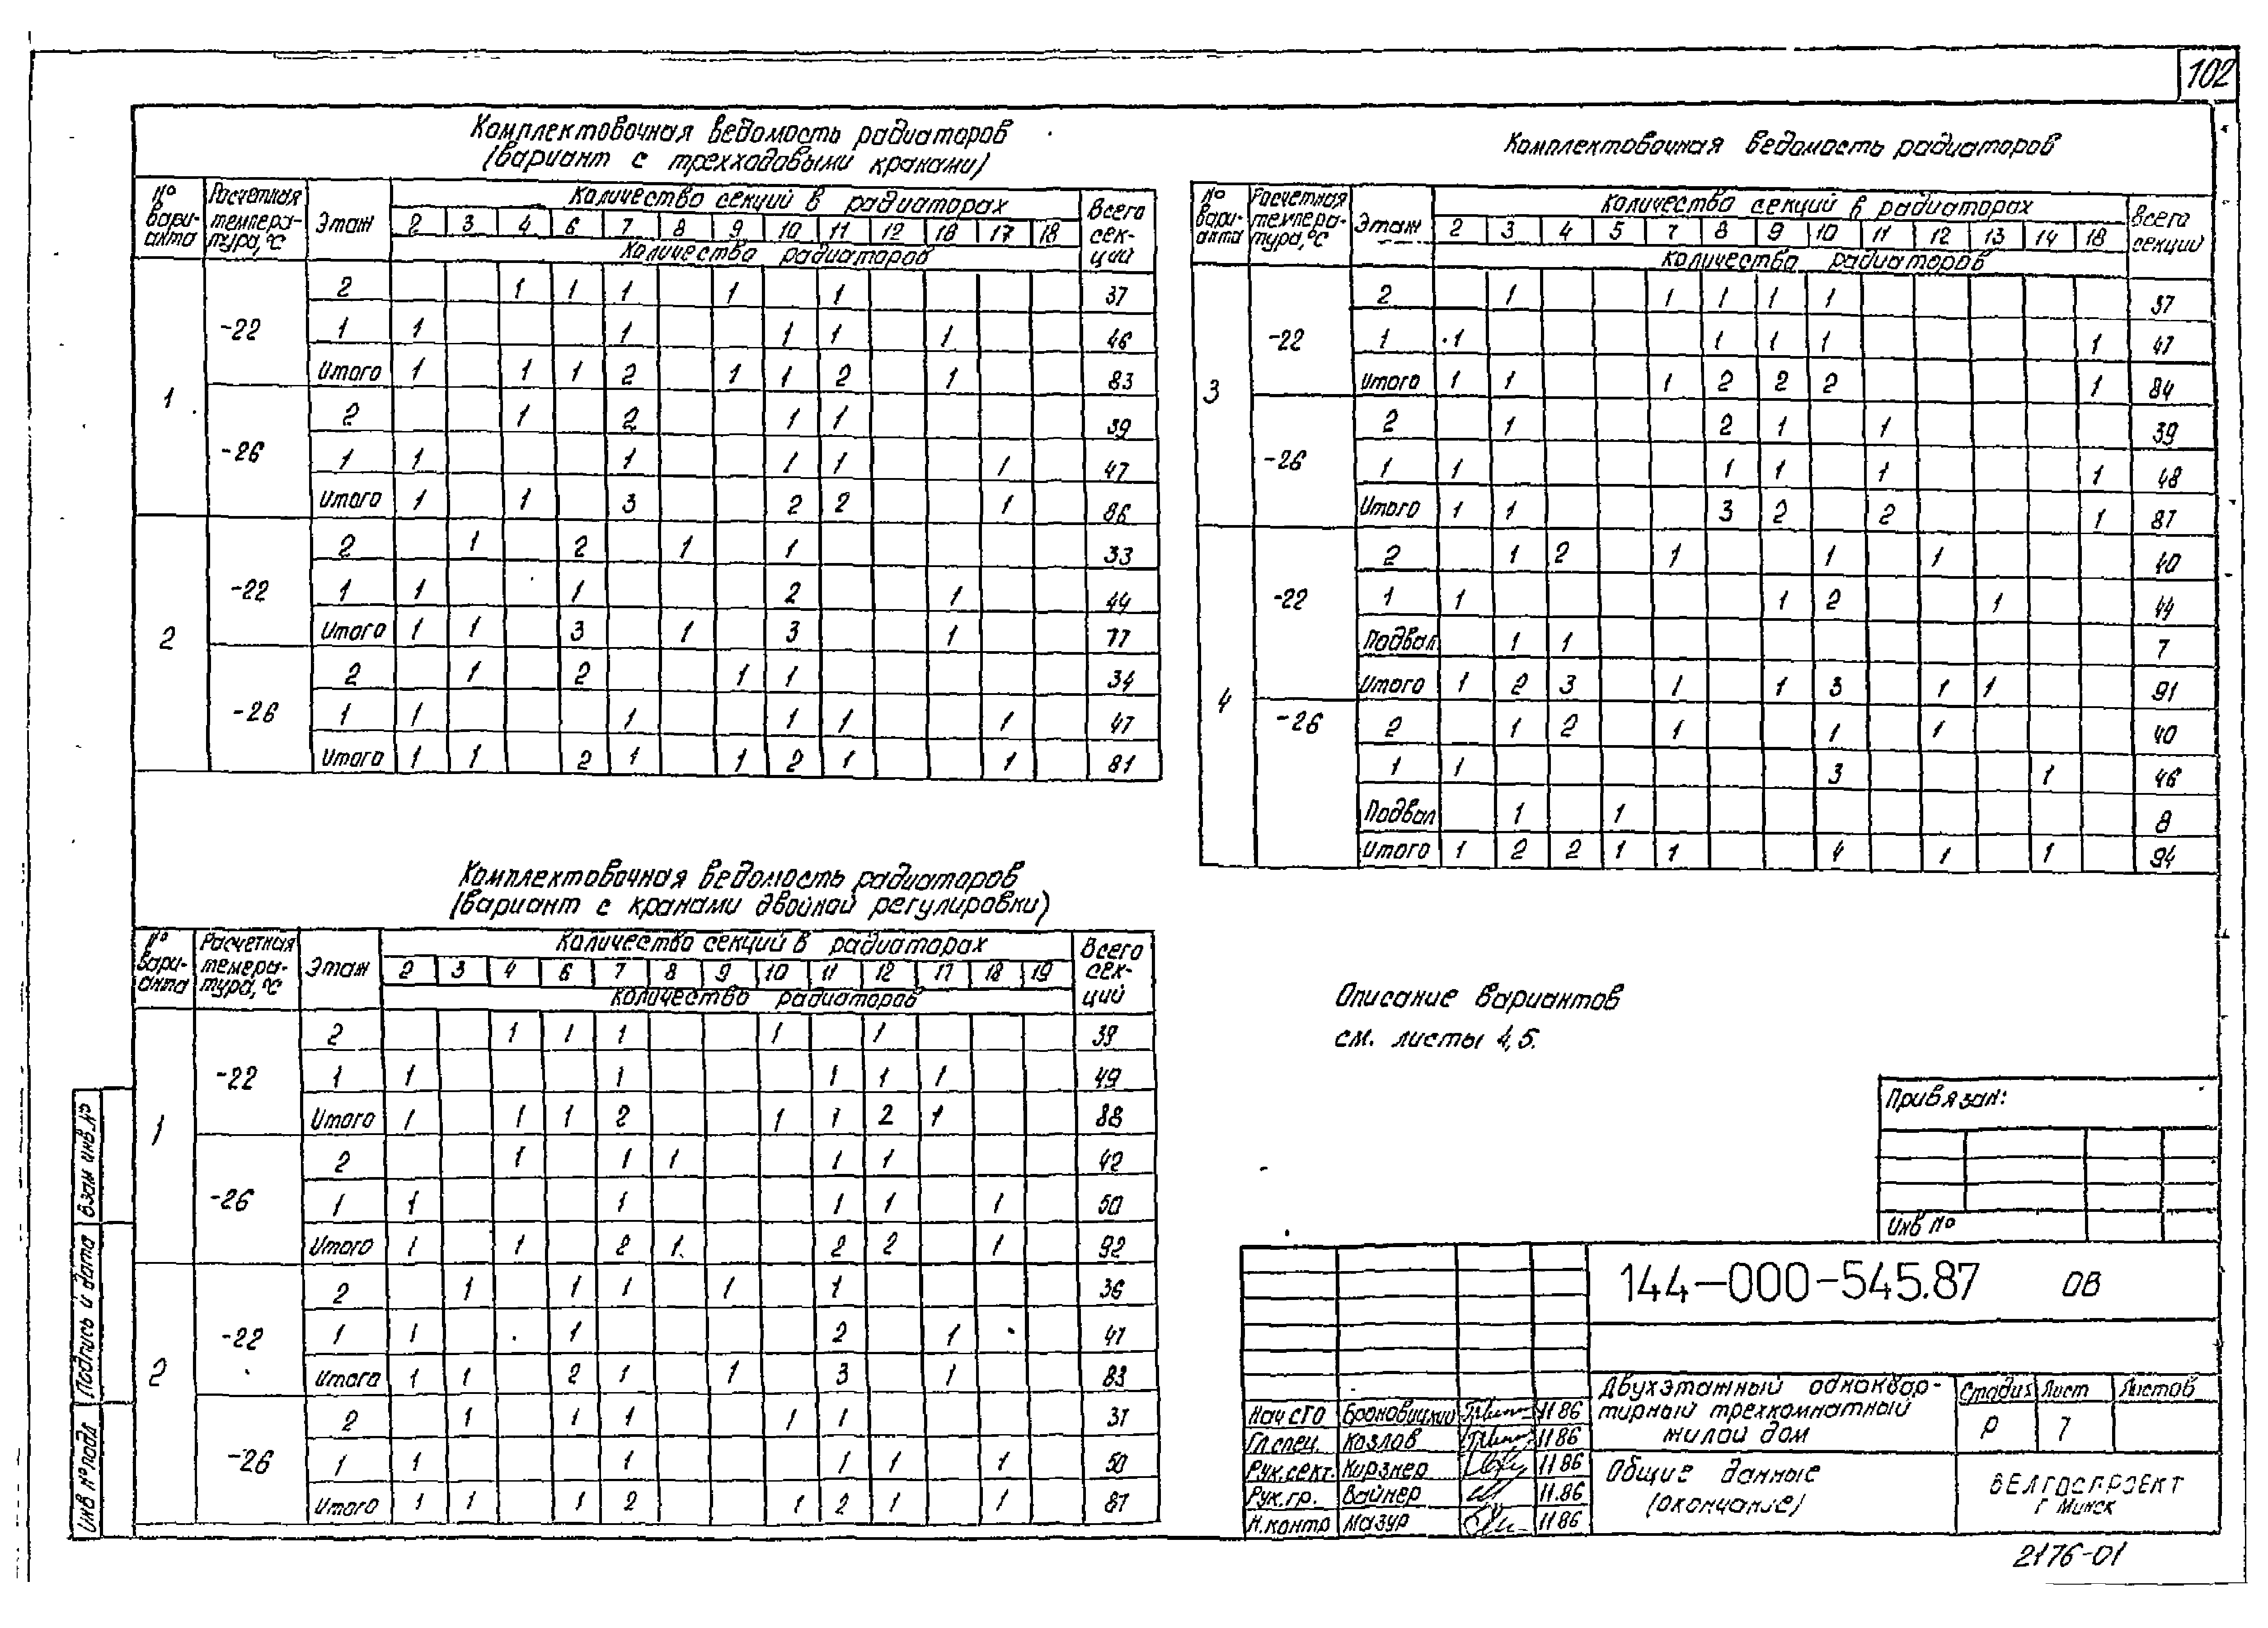 102
Комплектовочная ведомость радиаторов
(вариант с трехходовыми кранами)
№ вари-анта Расчетная темпера-тура, °С Этаж Количество секций в радиаторах Всего сек-ций
2 3 4 6 7 8 9 10 11 12 16 17 18
Количество радиаторов
1 -22 2 1 1 1 1 1 37
1 1 1 1 1 1 46
Итого 1 1 1 2 1 1 2 1 83
-26 2 1 2 1 1 39
1 1 1 1 1 1 47
Итого 1 1 3 2 2 1 86
2 -22 2 1 2 1 1 33
1 1 1 2 1 44
Итого 1 1 3 1 3 1 77
-26 2 1 2 1 1 34
1 1 1 1 1 1 47
Итого 1 1 2 1 1 2 1 1 81
Комплектовочная ведомость радиаторов
(вариант с кранами двойной регулировки)
№ вари-анта Расчетная темера-тура, °С Этаж Количество секций в радиаторах Всего сек-ций
2 3 4 6 7 8 9 10 11 12 17 18 19
Количество радиаторов
1 -22 2 1 1 1 1 1 39
1 1 1 1 1 1 49
Итого 1 1 1 2 1 1 2 1 88
-26 2 1 1 1 1 1 42
1 1 1 1 1 1 50
Итого 1 1 2 1 2 2 1 92
2 -22 2 1 1 1 1 1 36
1 1 1 2 1 47
Итого 1 1 2 1 1 3 1 83
-26 2 1 1 1 1 1 37
1 1 1 1 1 1 50
Итого 1 1 1 2 1 2 1 1 87
Комплектовочная ведомость радиаторов
№ вари-анта Расчетная темпера-тура, °С Этаж Количество секций в радиаторах Всего секций
2 3 4 5 7 8 9 10 11 12 13 14 18
Количество радиаторов
3 -22 2 1 1 1 1 1 37
1 1 1 1 1 1 47
Итого 1 1 1 2 2 2 1 84
-26 2 1 2 1 1 39
1 1 1 1 1 1 48
Итого 1 1 3 2 2 1 87
4 -22 2 1 2 1 1 1 40
1 1 1 2 1 44
Подвал 1 1 7
Итого 1 2 3 1 1 3 1 1 91
-26 2 1 2 1 1 1 40
1 1 3 1 46
Подвал 1 1 8
Итого 1 2 2 1 1 4 1 1 94
Описание вариантов
см. листы 4,5.
Привязан:
Инв №
144-000-545.87 ОВ
Нач СТО Броновицкий 11 86
Гл.спец. Козлов 11 86
Рук.сект. Кирзнер 11 86
Рук.гр. Вайнер 11.86
Н.контр Мазур 11 86
Двухэтажный одноквар-
тирный трехкомнатный
жилой дом
Стадия Лист Листов
Р 7
Общие данные
(окончание)
БЕЛГОСПРОЕКТ
г Минск
2176-01
Взам инв.№
Подпись и дата
Инв № подл